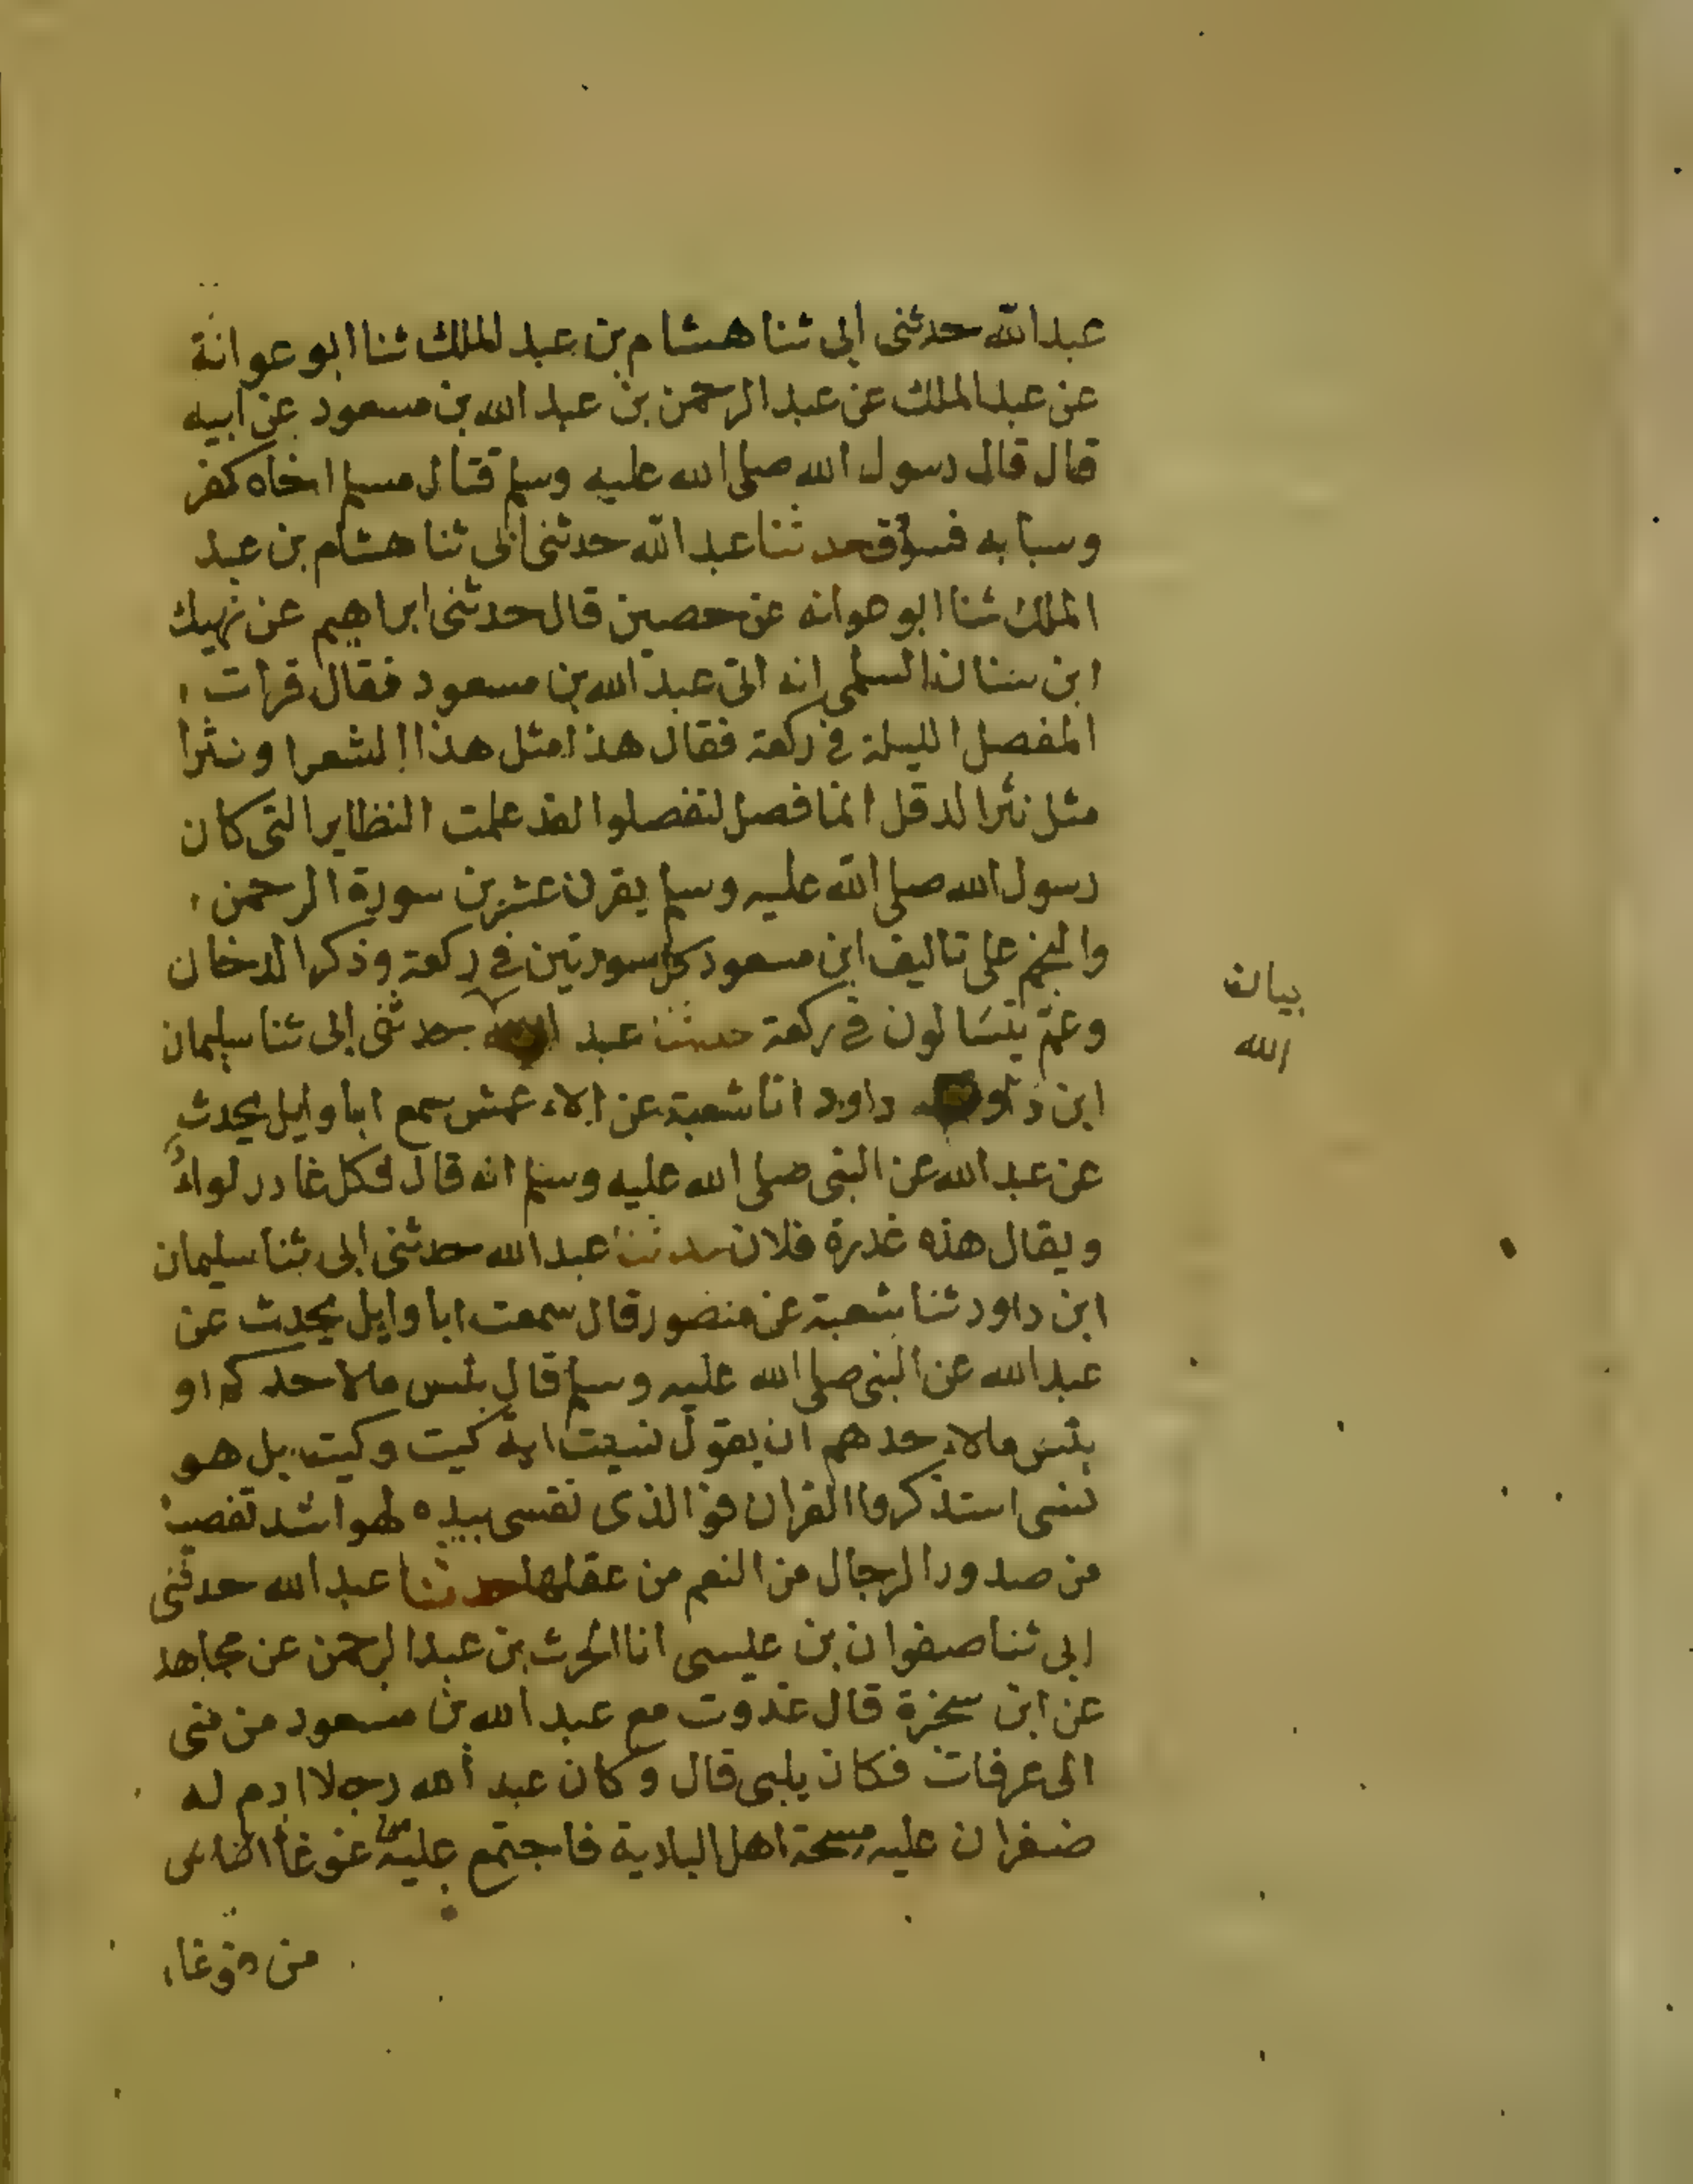 عبد الله حدثنى ابى ثنا هشام بن عبد الملك ثنا ابو عوانة
عن عبد الملك عن عبد الرحمن بن عبد الله بن مسعود عن ابيه
قال قال رسول الله صلى الله عليه وسلم قتال مسلم اخاه كفر
وسبابه فسوق حدثنا عبد الله حدثنى ابى ثنا هشام بن عبد
الملك ثنا ابو عوانه عن حصين قال حدثنى ابراهيم عن نهيك
ابن سنان السلمى انه اتى عبد الله بن مسعود فقال قرات
المفصل الليلة فى ركعة فقال هذا مثل هذا الشعر او نثرا
مثل نثر الدقل انما فصل لتفصلوا لقد علمت النظاير التى كان
رسول الله صلى الله عليه وسلم يقرن عشرين سورة الرحمن
والنجم على تاليف ابن مسعود كل سورتين فى ركعة وذكر الدخان
وعم يتسالون فى ركعة حدثنا عبد الله حدثنى ابى ثنا سليمان
ابن داود انا شعبة عن الاعمش سمع ابا وايل يحدث
عن عبد الله عن النبى صلى الله عليه وسلم انه قال لكل غادر لواء
ويقال هذه غدرة فلان حدثنا عبد الله حدثنى ابى ثنا سليمان
ابن داود ثنا شعبة عن منصور قال سمعت ابا وايل يحدث عن
عبد الله عن النبى صلى الله عليه وسلم قال بئس مالاحدكم او
بئس مالاحدهم ان يقول نسيت اية كيت وكيت بل هو
نسى استذكروا القران فو الذى نفسى بيده لهو اشد تفصيا
من صدور الرجال من النعم من عقلها حدثنا عبد الله حدثنى
ابى ثنا صفوان بن عيسى انا الحرث بن عبد الرحمن عن مجاهد
عن ابن سخبرة قال غدوت مع عبد الله بن مسعود من منى
الى عرفات فكان يلبى قال وكان عبد الله رجلا ادم له
ضفران عليه مسحة اهل البادية فاجتمع عليه من غوغا الناس
بيان
الله
من غوغاء